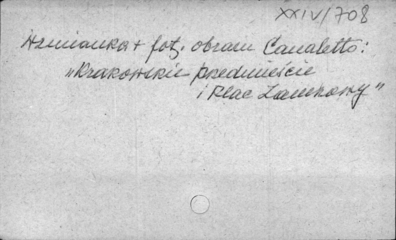 XXIV/708
Wzmianka + fot. obrazu Canaletto:
„Krakowskie przedmieście
i Plac Zamkowy"